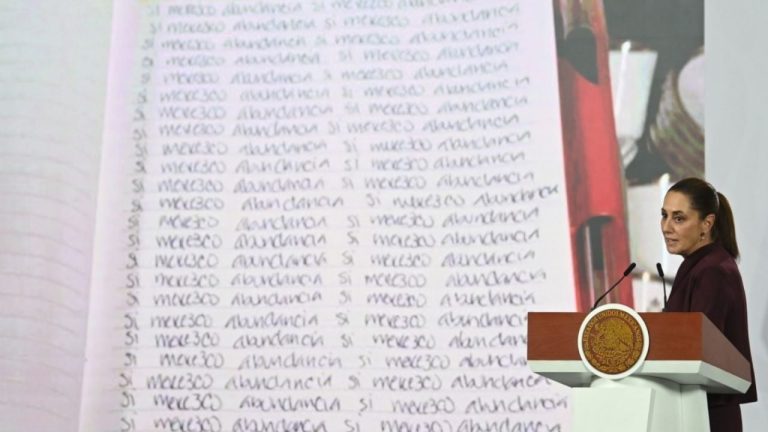 si merezco abundancia si merezco abundancia
si merezco abundancia si merezco abundancia
si merezco abundancia si merezco abundancia
si merezco abundancia si merezco abundancia
si merezco abundancia si merezco abundancia
si merezco abundancia si merezco abundancia
si merezco abundancia si merezco abundancia
si merezco abundancia si merezco abundancia
si merezco abundancia si merezco abundancia
si merezco abundancia si merezco abundancia
si merezco abundancia si merezco abundancia
si merezco abundancia si merezco abundancia
si merezco abundancia si merezco abundancia
si merezco abundancia si merezco abundancia
si merezco abundancia si merezco abundancia
si merezco abundancia si merezco abundancia
si merezco abundancia si merezco abundancia
si merezco abundancia si merezco abundancia
si merezco abundancia si merezco abundancia
si merezco abundancia si merezco abundancia
si merezco abundancia si merezco abundancia
si merezco abundancia si merezco abundancia
si merezco abundancia si merezco abundancia
ESTADOS UNIDOS MEXICANOS